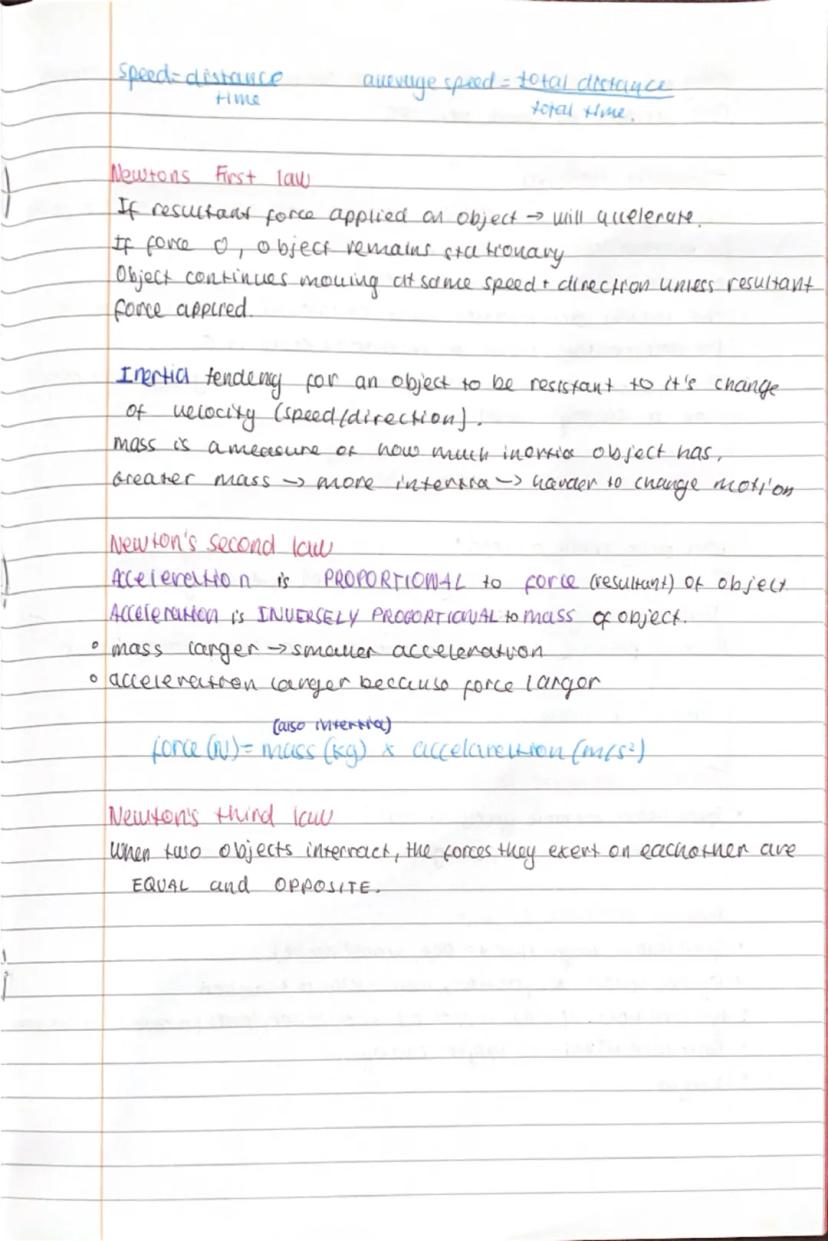 speed = distance average speed = total distance
time total time.
Newtons First law
If resultant force applied on object → will accelerate.
If force 0, object remains stationary
Object continues moving at same speed + direction unless resultant
force applied.
Inertia tendency for an object to be resistant to it's change
of velocity (speed/direction).
mass is a measure of how much inertia object has,
Greater mass → more intertia → harder to change motion
Newton's second law
Acceleration is PROPORTIONAL to force (resultant) of object
Acceleration is INVERSELY PROPORTIONAL to mass of object.
∘ mass larger → smaller acceleration
∘ acceleration larger because force larger
(also intertia)
force (N) = mass (kg) x accelaration (m/s²)
Newton's third law
When two objects interract, the forces they exert on eachother are
EQUAL and OPPOSITE.